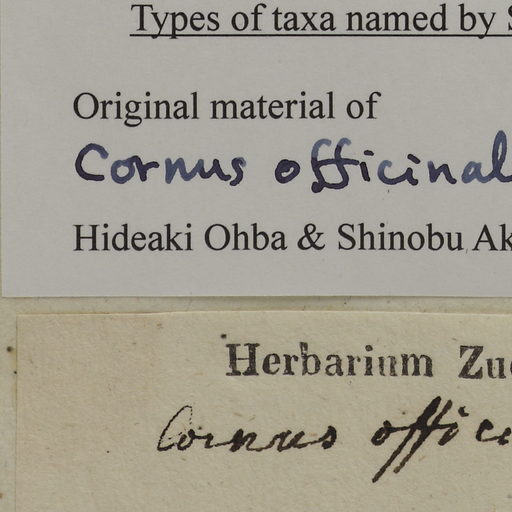 Types of taxa named by S
Original material of
Cornus officinal
Hideaki Ohba & Shinobu Ak
Herbarium Zuc
Cornus offici